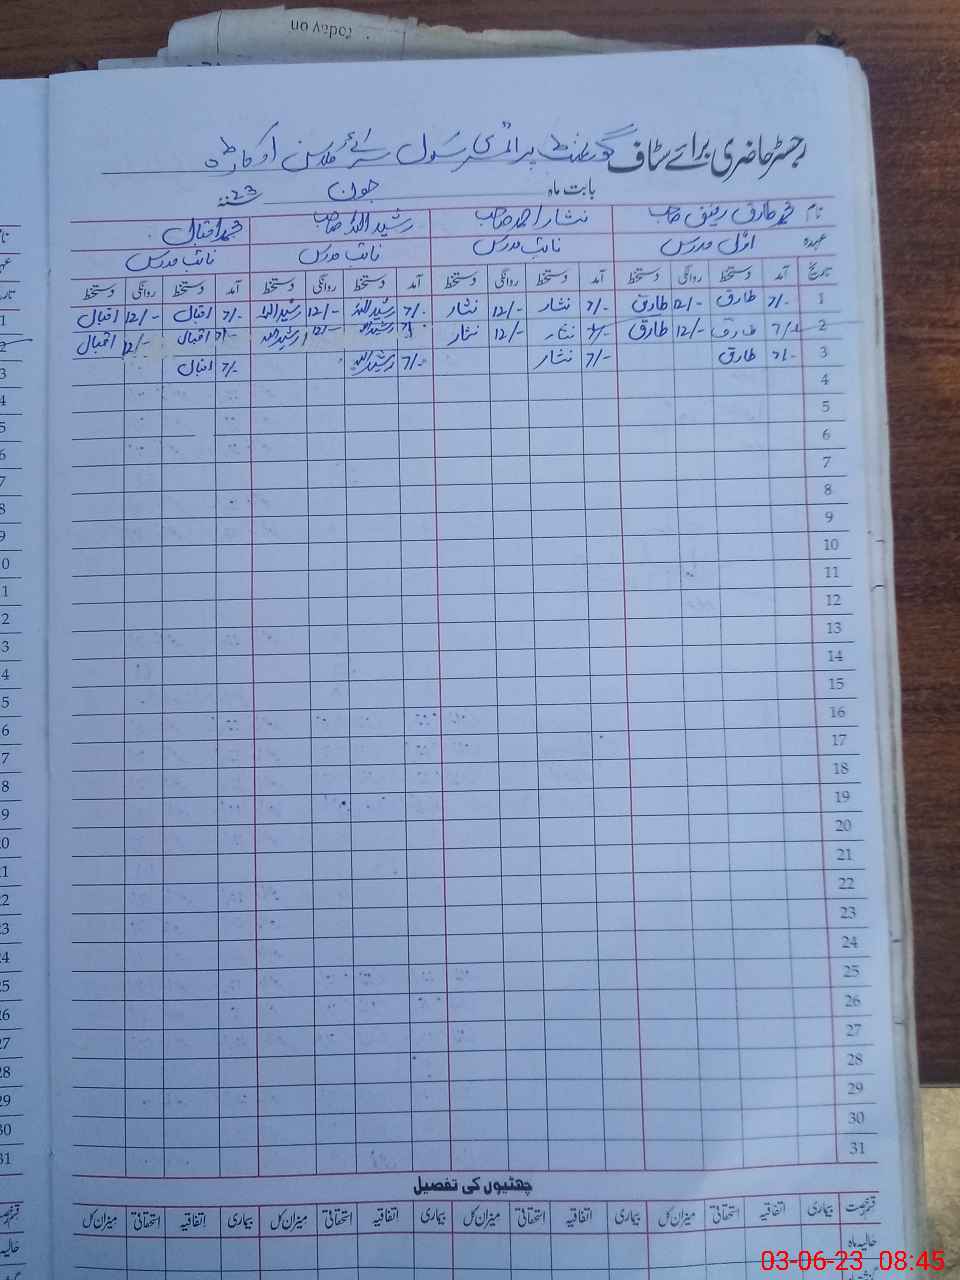 today on
رجسٹر حاضری برائے سٹاف گورنمنٹ پرائمری سکول سرائے اوکاڑہ
بابت ماہ جون 23
نام محمد طارق رفیق صاحب نثار احمد صاحب رشید اللہ صاحب محمد اقبال
عہدہ اول مدرس نائب مدرس نائب مدرس نائب مدرس
تاریخ آمد دستخط روانگی دستخط آمد دستخط روانگی دستخط آمد دستخط روانگی دستخط آمد دستخط روانگی دستخط
1 7/- طارق 12/- طارق 7/- نثار 12/- نثار 7/- رشید اللہ 12/- رشید اللہ 7/- اقبال 12/- اقبال
2 7/- طارق 12/- طارق 7/- نثار 12/- نثار 7/- رشید اللہ 12/- رشید اللہ 7/- اقبال 12/- اقبال
3 7/- طارق 7/- نثار 7/- رشید اللہ 7/- اقبال
4
5
6
7
8
9
10
11
12
13
14
15
16
17
18
19
20
21
22
23
24
25
26
27
28
29
30
31
چھٹیوں کی تفصیل
قسم رخصت بیماری اتفاقیہ استحقاقی میزان کل بیماری اتفاقیہ استحقاقی میزان کل بیماری اتفاقیہ استحقاقی میزان کل بیماری اتفاقیہ استحقاقی میزان کل
حالیہ ماہ
03-06-23 08:45